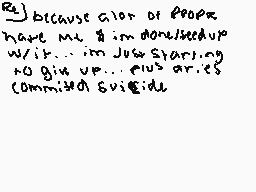 Re] because alot of peopl
hate me & im done/seed up
w/it... im just starting
to give up... plus aries
commited suicide